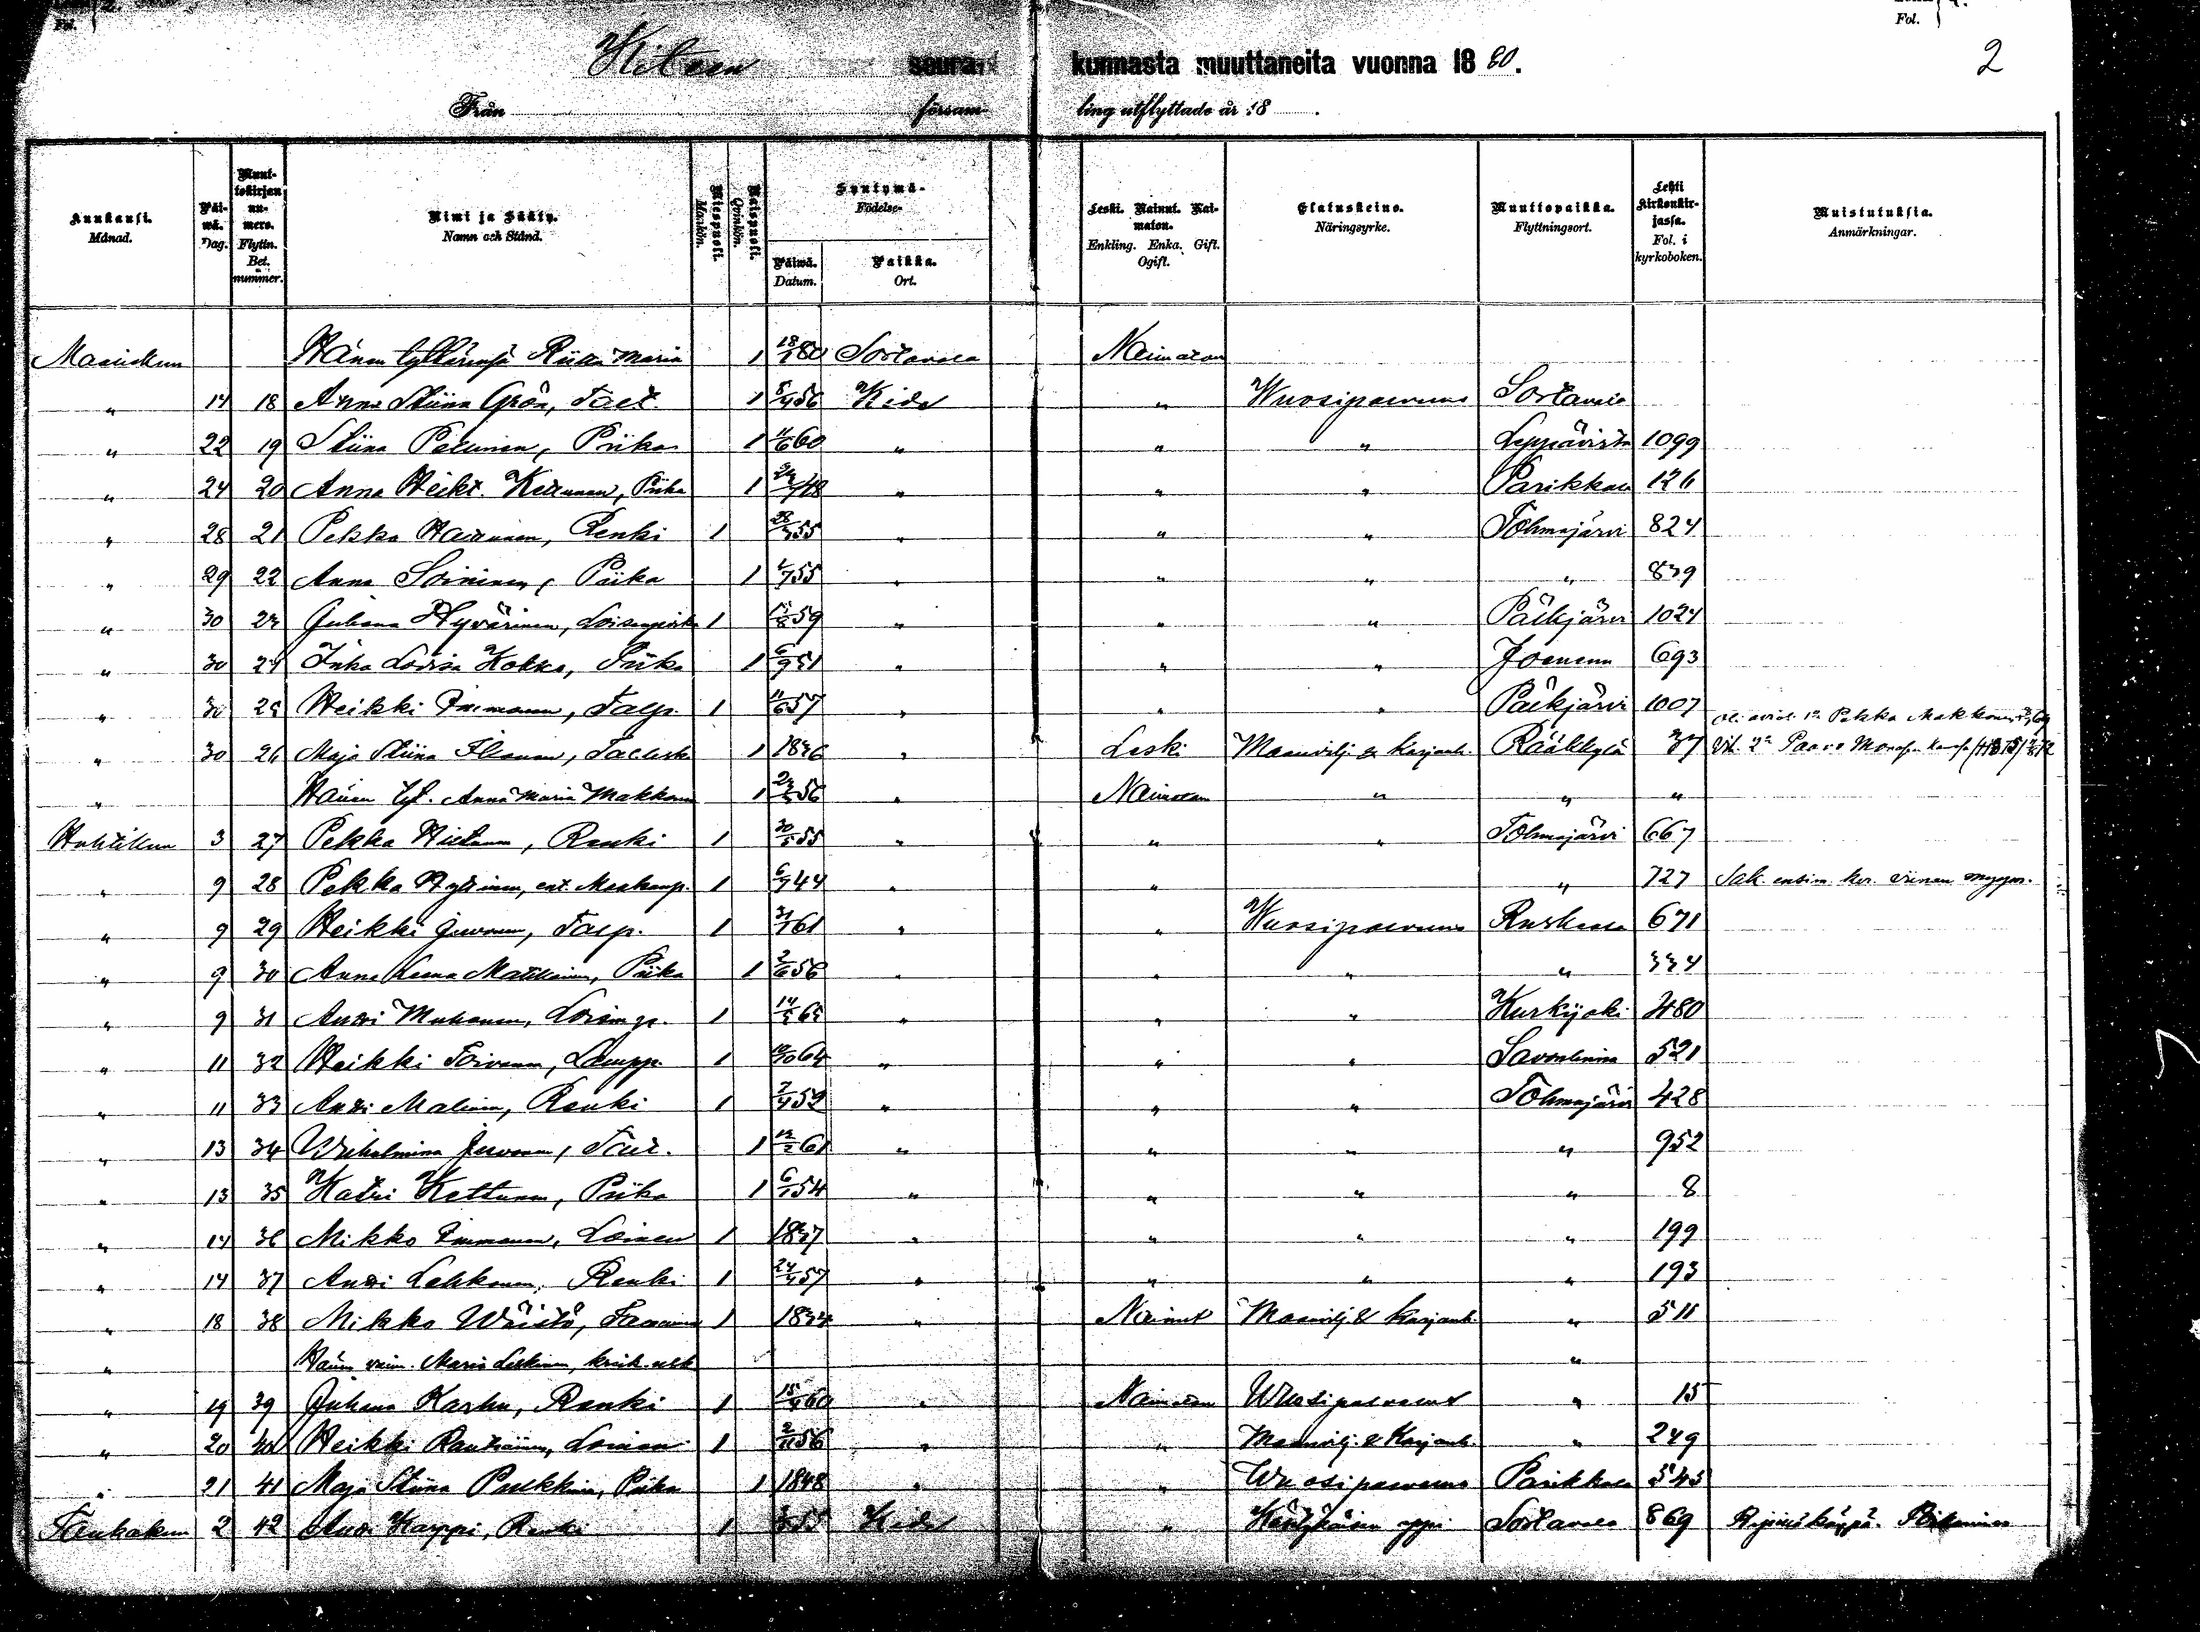 Fol.
Fol.
2
Kiteen seurakunnasta muuttaneita vuonna 1880.
Från församling utflyttade år 18 .
Kuukausi. Månad. Päiwä. Dag. Muuttokirjan numero. Flyttn. Bet. nummer. Nimi ja Sääty. Namn och Stånd. Miespuoli. Mankön. Waispuoli. Qvinkön. Syntymä- Födelse- Päiwä. Datum. Paikka. Ort. Leski. Nainut. Naimaton. Enkling. Enka. Gift. Ogift. Elatuskeino. Näringsyrke. Muuttopaikka. Flyttningsort. Lehti kirkonkirjassa. Fol. i kyrkoboken. Muistutuksia. Anmärkningar.
Maaliskuu Hänen tyttärensä Riikka Maria 1 80 Sortavala Naimaton
" 14 18 Anna Stiina Grön, 1 8/4 56 Kides " Wuosipalvelus Sortavala
" 22 19 Stiina Pelunen, Piika 1 11/6 60 " " " Leppävirta 1099
" 24 20 Anna Heikt. Kettunen, Piika 1 48 " " " Parikkala 126
" 28 21 Pekka Hattunen, Renki 1 55 " " " Tohmajärvi 824
" 29 22 Anna Soininen, Piika 1 55 " " " " 839
" 30 23 Juhana Hyvärinen, Loisenpoika 1 59 " " " Pälkjärvi 1024
" 30 24 Inka Lovisa Kokko, Piika 1 6/9 51 " " " Joensuu 693
" 30 25 Heikki Immonen, Talp. 1 11/6 57 " " " Pälkjärvi 1007
" 30 26 Maja Stiina Ikonen, 1 1836 " Leski Maanvilj. & Karjanh. Rääkkylä 37 Oli aviol. 1o Pekka Makkonen
" Hänen tyt. Anna Maria Makkonen 1 56 " Naimaton " " "
Huhtikuu 3 27 Pekka Hiltunen, Renki 1 30/5 55 " " " Tohmajärvi 667
" 9 28 Pekka Hytinen, 1 44 " " " 727 Sak. ensim. ker. viinan myym.
" 9 29 Heikki Juvonen, Talp. 1 61 " " Wuosipalvelus Ruskeala 671
" 9 30 Anna Leena Matikainen, Piika 1 2/6 56 " " " " 334
" 9 31 Antti Muhonen, Loisenp. 1 14/5 65 " " " Kurkijoki 480
" 11 32 Heikki Toivanen, Lampp. 1 64 " " " Savonlinna 521
" 11 33 Antti Malinen, Renki 1 59 " " " Tohmajärvi 428
" 13 34 Wilhelmina Juvonen, 1 61 " " " " 952
" 13 35 Katri Kettunen, Piika 1 54 " " " " 8
" 14 36 Mikko Immonen, Loinen 1 1837 " " " " 199
" 14 37 Antti Lekkonen, Renki 1 57 " " " " 193
" 18 38 Mikko Wäistö, 1 1834 " Nainut Maanvilj. & Karjanh. " 511
" Hänen vaim. Maria Leskinen, "
" 19 39 Juhana Karhu, Renki 1 60 " Naimaton Wuosipalvelus " 15
" 20 40 Heikki Rautiainen, Loinen 1 56 " " Maanvilj. & Karjanh. " 249
" 21 41 Maja Stiina Pulkkinen, Piika 1 1848 " " Wuosipalvelus Parikkala 545
Toukokuu 2 42 Antti Karppi, Renki 1 55 Kides " Käsityöläisen oppi Sortavala 869